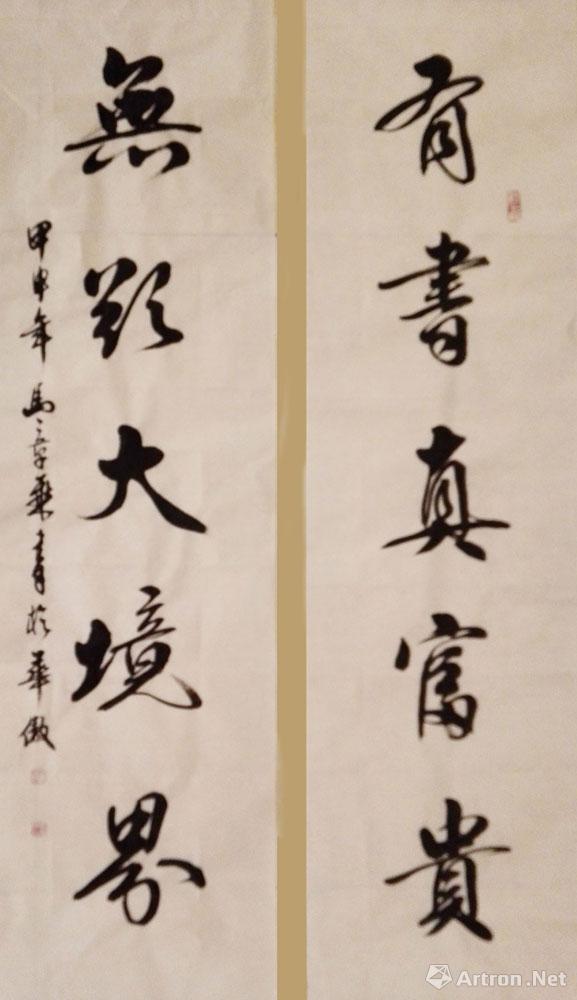 有書真富貴
無欲大境界
甲申年馬章乘書於華傲
Artron.Net